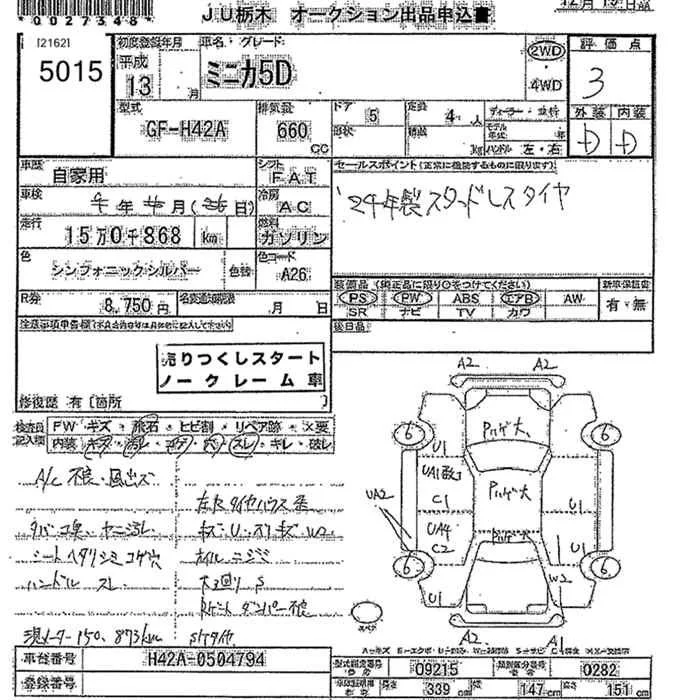 *0027348*
JU栃木 オークション出品申込書
[2162]
5015
初度登録年月
平成
13 月
車名・グレード
ミニカ5D
2WD
・
4WD
評価点
3
外装 内装
D D
型式
GF-H42A
排気量
660
CC
ドア 5
形状
定員 4人
積載 kg
ディーラー・並行
モデル年式 年
ハンドル 左・右
車歴
自家用
シフト
FAT
車検
年 月 日
冷房
AC
走行
15万0千868 km
燃料
ガソリン
色
シンフォニックシルバー
色替
色コード
A26
R券
8,750円
名変期限
月 日
セールスポイント(正常に機能するものに限ります)
'24年製スタッドレスタイヤ
装備品(純正品に限り○をつけてください)
PS PW ABS エアB AW
SR ナビ TV カワ
新車保証書
有・無
後日品
注意事項申告欄
売りつくしスタート
ノークレーム車
修復歴 有〔箇所 〕
検査員記入欄
FW キズ・飛石・ヒビ割・リペア跡・X要
内装 キズ・汚レ・コゲ・穴・スレ・キレ・破レ
A/C 不良・風出ズ
タバコ臭、ヤニ汚レ
シートヘタリシミコゲ穴
ハンドル スレ
現メーター150,873km
キズ・U・スリキズ W2
オイルニジミ
下回り S
Rゲートダンパー不良
A2 A2
6 6
U1
Rハゲ大
UA1
C1
UA2
Rハゲ大
U1
UA4
C2
U1
6 6
W2
U1
A2 A1
スペア
車台番号 H42A-0504794
登録番号
型式指定番号 09215
類別区分番号 0282
長さ 339cm 幅 147cm 高さ 151cm